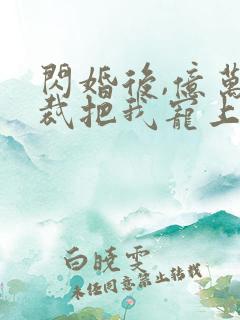 閃婚後,億萬
裁把我寵上
白曉雯
未经同意禁止转载